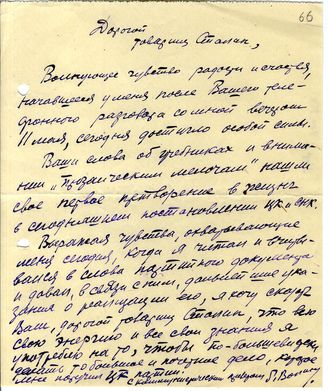 66
Дорогой
товарищ Сталин,
Волнующее чувство радости и счастья,
начавшееся у меня после Вашего теле-
фонного разговора со мной вечером
11 мая, сегодня достигло особой силы.
Ваши слова об учебниках и внима-
нии „прозаическим мелочам“ нашли
свое первое претворение в жизнь
в сегодняшнем постановлении ЦК и СНК.
Выражая чувства, охватывающие
меня сегодня, когда я читал и вчиты-
вался в слова партийного документа
и давал, в связи с ним, дальнейшие ука-
зания о реализации его, я хочу сказать
Вам, дорогой товарищ Сталин, что всю
свою энергию и все свои знания я
употреблю на то, чтобы по-большевистски
сделать то большое и почетное дело, которое
мне поручил ЦК партии.
С коммунистическим приветом